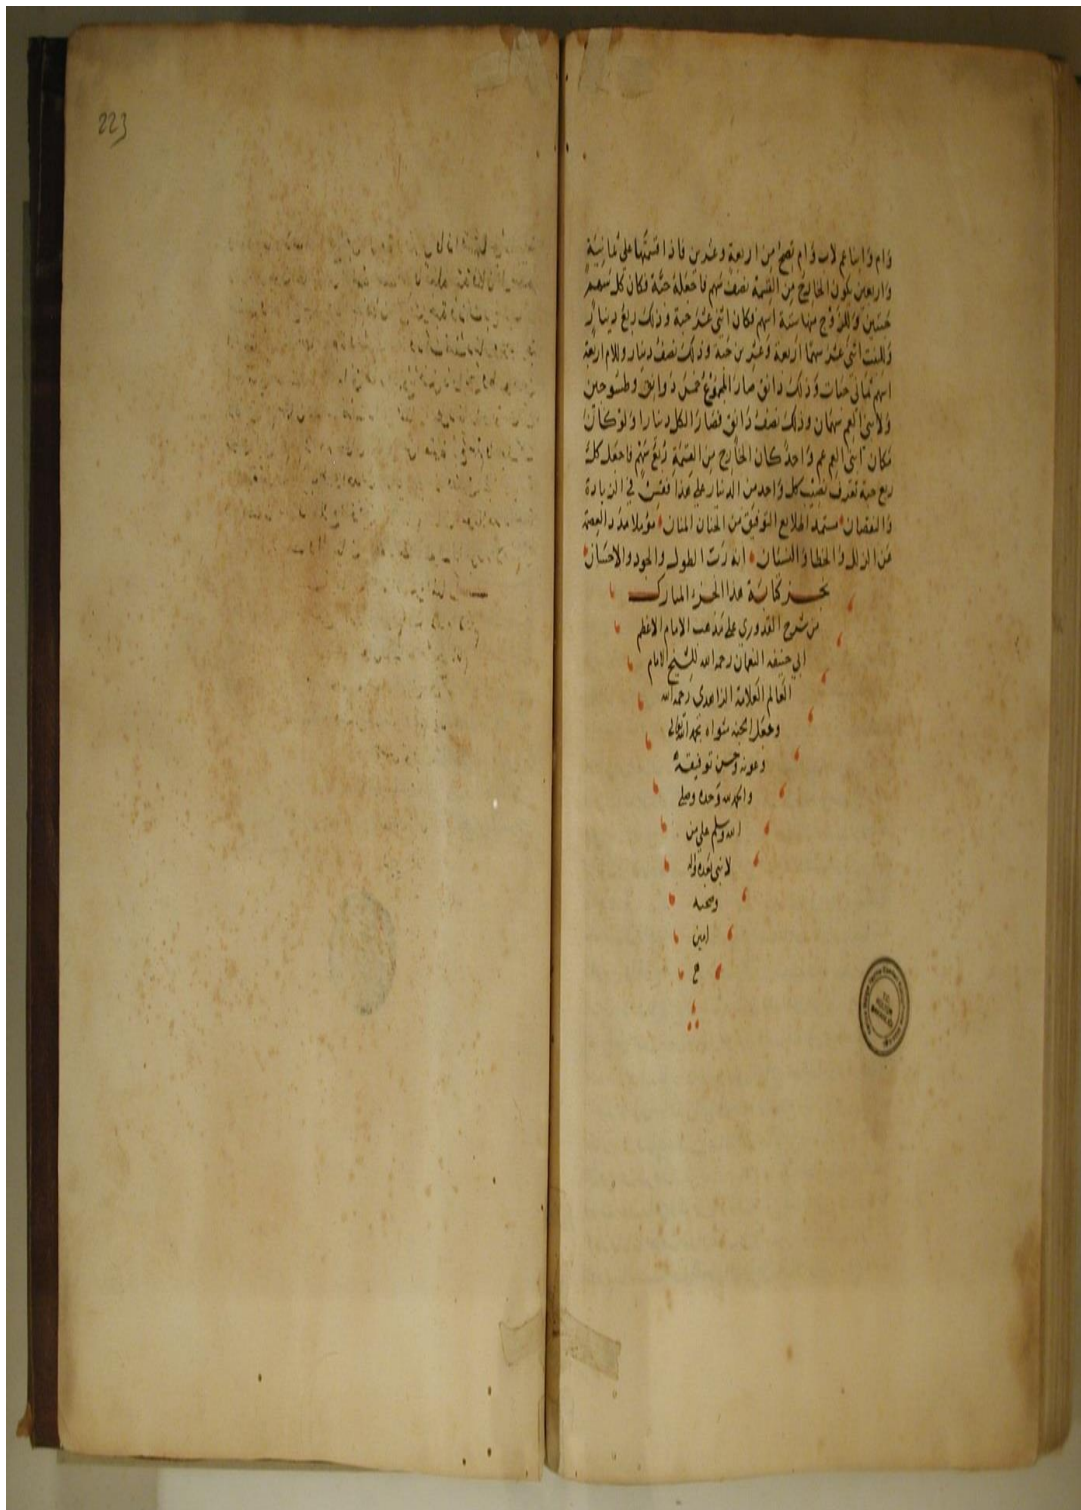 وام وابنا عم لاب وام تصح من اربعة وعشرين فاذا قسمتها على ثمانية
واربعين يكون الخارج من القسمة نصف سهم فاجعله حبة فكان كل سهم
حبتين وللزوج منها ستة اسهم فكان اثنى عشر حبة وذلك ربع دينار
وللبنت اثنى عشر سهما اربعة وعشرين حبة وذلك نصف دينار وللام اربعة
اسهم ثماني حبات وذلك دانق صار المجموع خمس دوانق وطسوجين
ولابني العم سهمان وذلك نصف دانق فصار الكل دينارا ولو كان
مكان ابنى العم عم واحد كان الخارج من القسمة ربع سهم فاجعل كل
ربع حبة تعرف نصيب كل واحد من الدينار على هذا فقس في الزيادة
والنقصان مستمد التوفيق من الحنان المنان مؤملا مدد العصمة
من الزلل والخطا والنسيان انه رب الطول والجود والاحسان
نجز كتابة هذا الجزء المبارك
من شرح القدوري على مذهب الامام الاعظم
ابي حنيفه النعمان رحمه الله للشيخ الامام
العالم العلامة الزاهدى رحمه الله
وجعل الجنه مثواه بحمد الله تعالى
وعونه وحسن توفيقه
والحمد لله وحده وصلى
الله وسلم على من
لا نبي بعده واله
وصحبه
امين
م
223